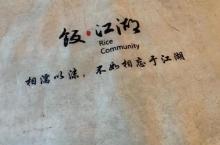 饭·江湖
Rice
Community
相濡以沫，不如相忘于江湖